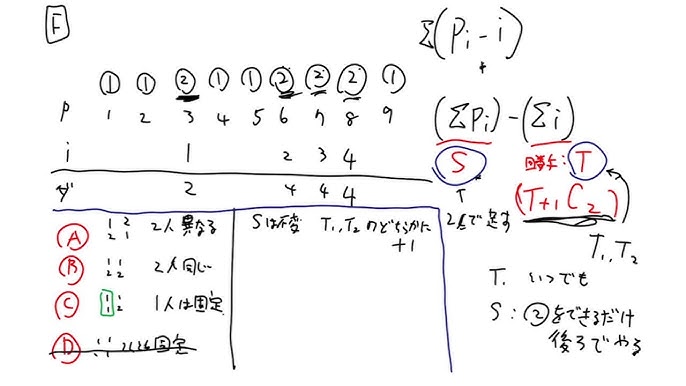 F
Σ(Pi - i)
① ① ② ① ① ② ② ② ①
P 1 2 3 4 5 6 7 8 9
i 1 2 3 4
ダ 2 4 4 4
(ΣPi) - (Σi)
S
T
(T+1C2)
T1, T2
A 1 2 2人異なる
2 1
B 1 1 2人同じ
2 2
C 1 1 1人は固定
1 2
D 固定
Sは不変 T1, T2のどちらかに
+1
2人で足す
T. いつでも
S: ②をできるだけ
後ろでやる